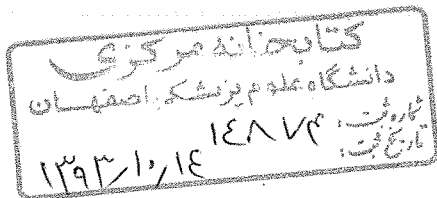 کتابخانه مرکزی
دانشگاه علوم پزشکی اصفهان
شماره ثبت: ۱۴۸۷۴
تاریخ ثبت: ۱۳۹۳/۱۰/۱۴